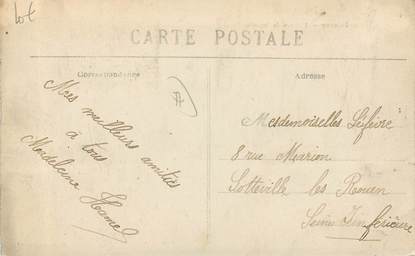 lot
CARTE POSTALE
Correspondance
Adresse
Mes meilleurs amitiés
à tous
Madeleine Hamel
Mesdemoiselles Lefèvre
8 rue Marion
Sotteville les Rouen
Seine Inférieure